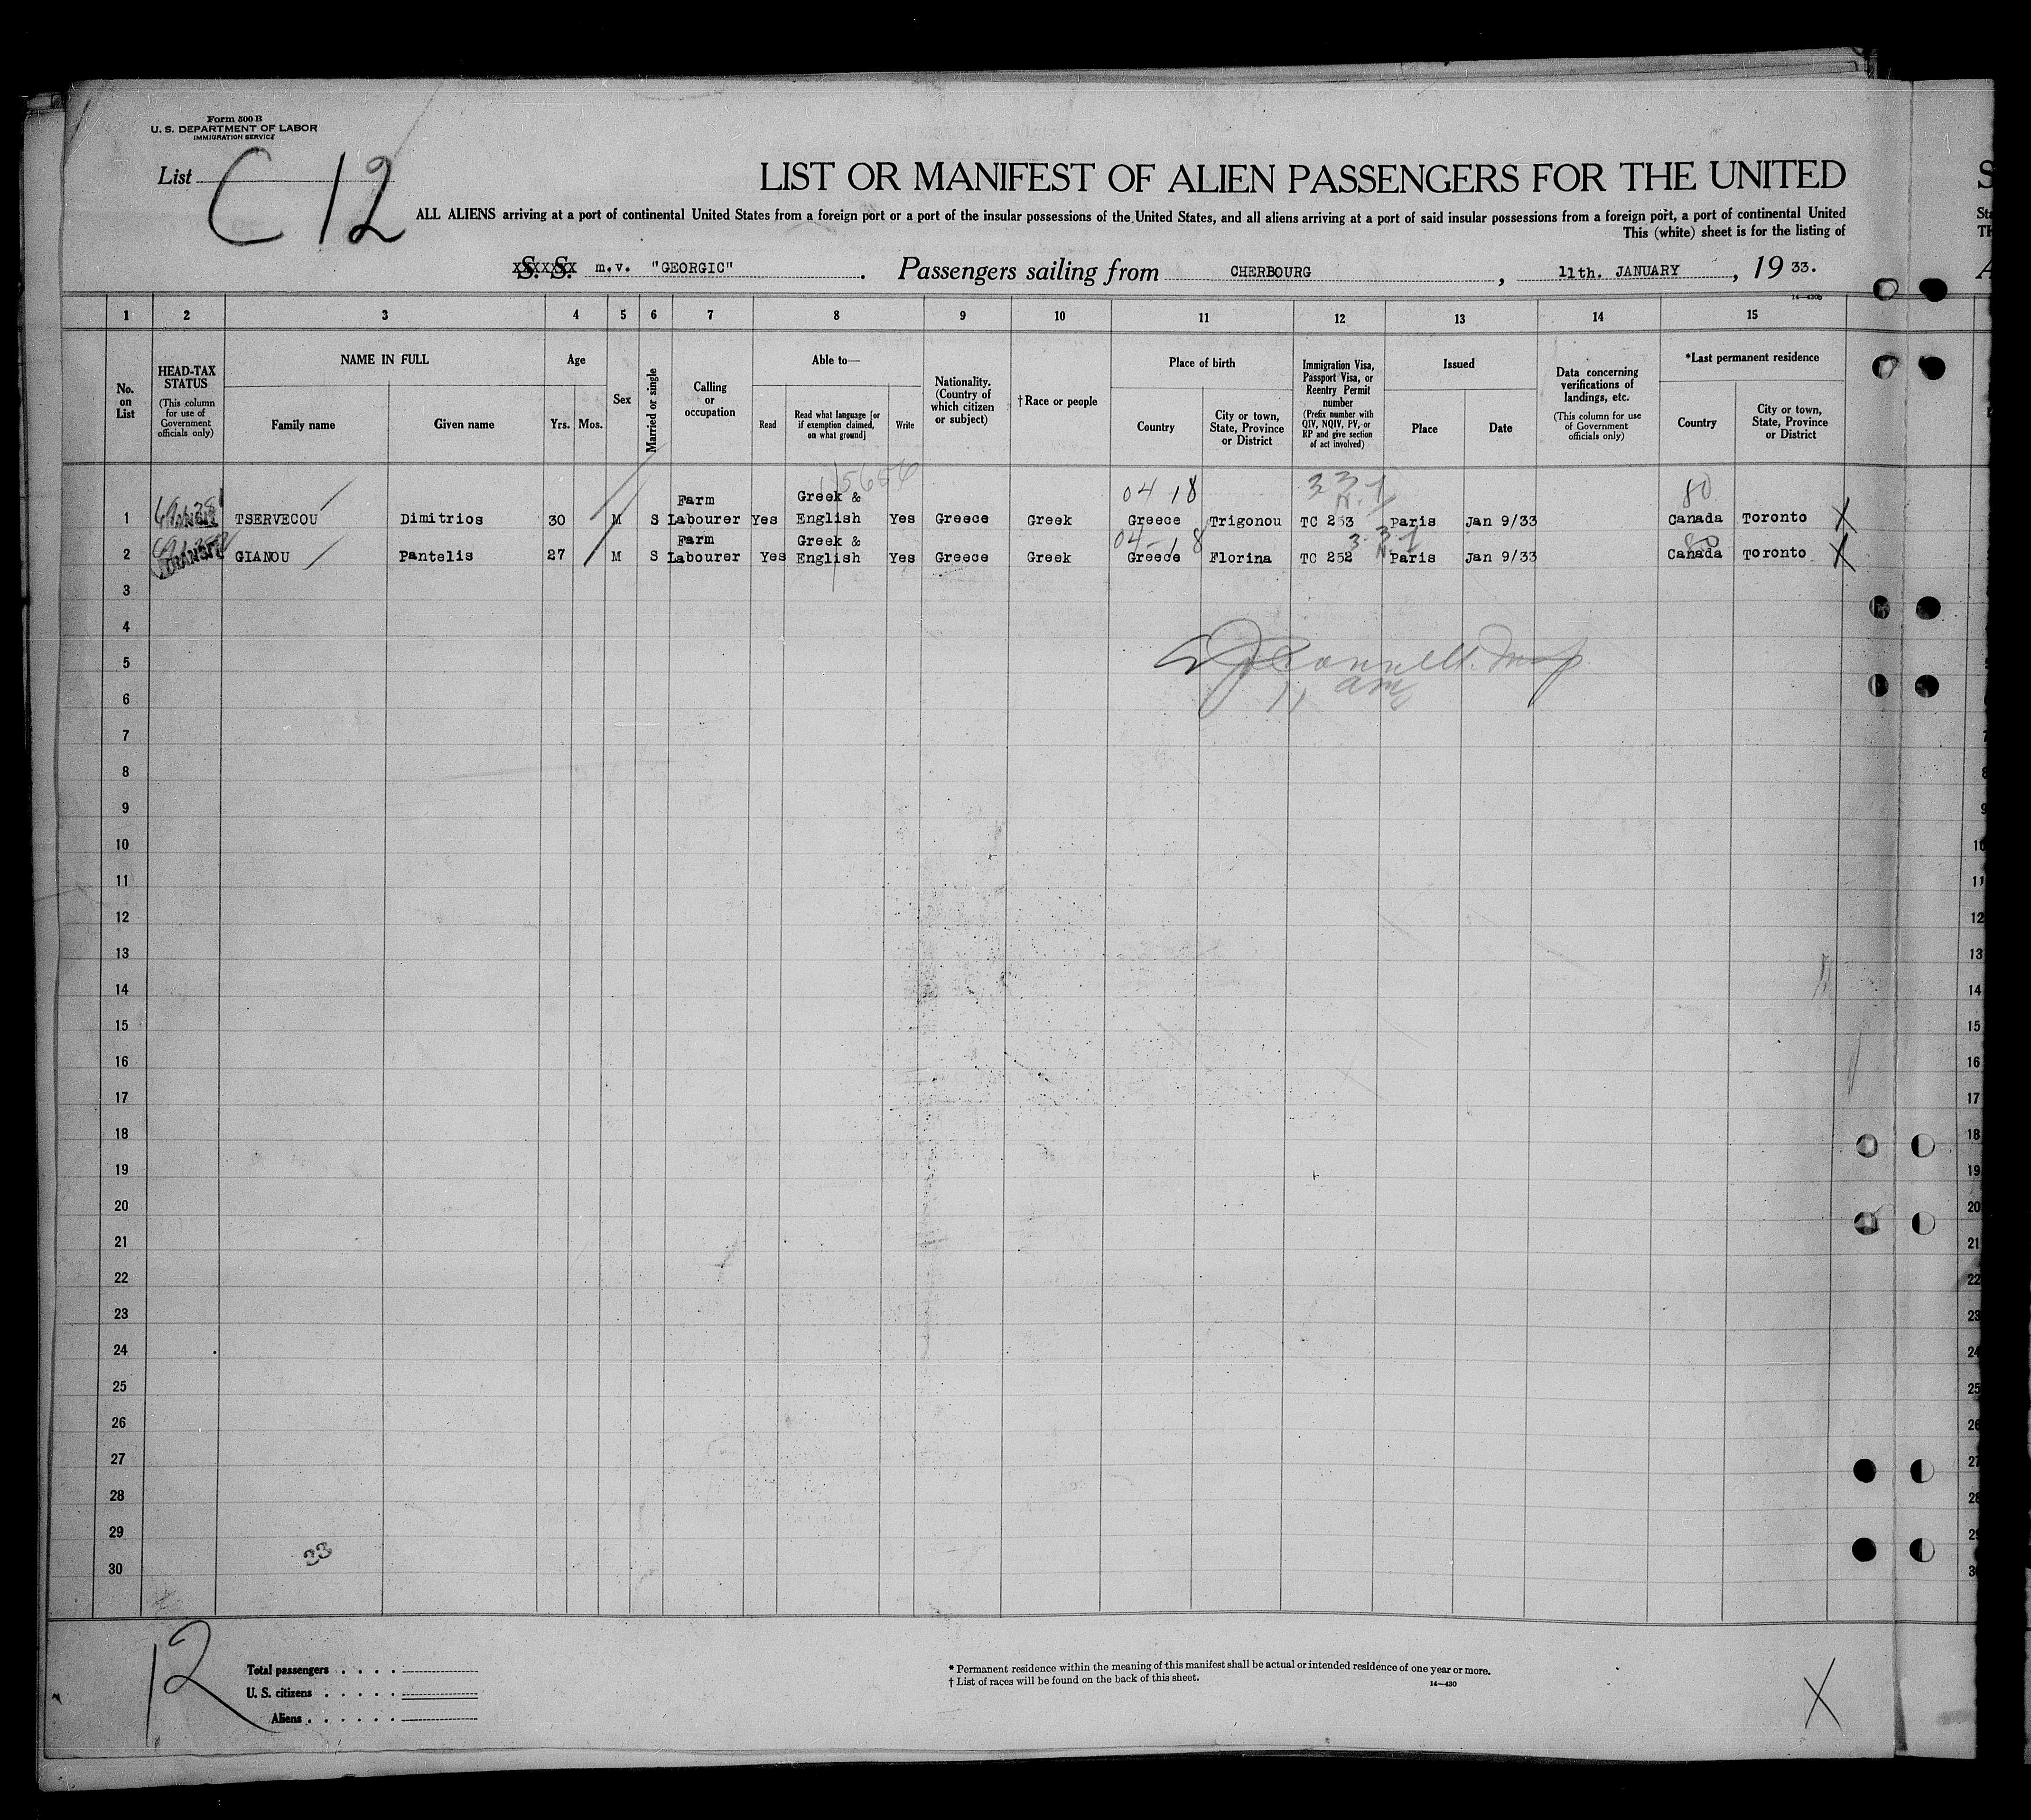 Form 500 B
U. S. DEPARTMENT OF LABOR
IMMIGRATION SERVICE
List C 12
LIST OR MANIFEST OF ALIEN PASSENGERS FOR THE UNITED
ALL ALIENS arriving at a port of continental United States from a foreign port or a port of the insular possessions of the United States, and all aliens arriving at a port of said insular possessions from a foreign port, a port of continental United
This (white) sheet is for the listing of
S. S. m.v. "GEORGIC" . Passengers sailing from CHERBOURG , 11th. JANUARY , 19 33.
14—430b
1 2 3 4 5 6 7 8 9 10 11 12 13 14 15
No. on List
HEAD-TAX STATUS
(This column for use of Government officials only)
NAME IN FULL
Family name Given name
Age
Yrs. Mos.
Sex
Married or single
Calling or occupation
Able to—
Read
Read what language [or if exemption claimed, on what ground]
Write
Nationality. (Country of which citizen or subject)
†Race or people
Place of birth
Country
City or town, State, Province or District
Immigration Visa, Passport Visa, or Reentry Permit number
(Prefix number with QIV, NQIV, PV, or RP and give section of act involved)
Issued
Place Date
Data concerning verifications of landings, etc.
(This column for use of Government officials only)
*Last permanent residence
Country
City or town, State, Province or District
04 18 3 3 1 80
1 TSERVECOU Dimitrios 30 M S Farm Labourer Yes Greek & English Yes Greece Greek Greece Trigonou TC 253 Paris Jan 9/33 Canada Toronto X
04-18 3-3-1 80
2 TRANSIT GIANOU Pantelis 27 M S Farm Labourer Yes Greek & English Yes Greece Greek Greece Florina TC 252 Paris Jan 9/33 Canada Toronto X
3
4
5
6
11 am
7
8
9
10
11
12
13
14
15
16
17
18
19
20
21
22
23
24
25
26
27
28
29
33
30
12
Total passengers . . . .
U. S. citizens . . . . .
Aliens . . . . . .
* Permanent residence within the meaning of this manifest shall be actual or intended residence of one year or more.
† List of races will be found on the back of this sheet.
14—430
X